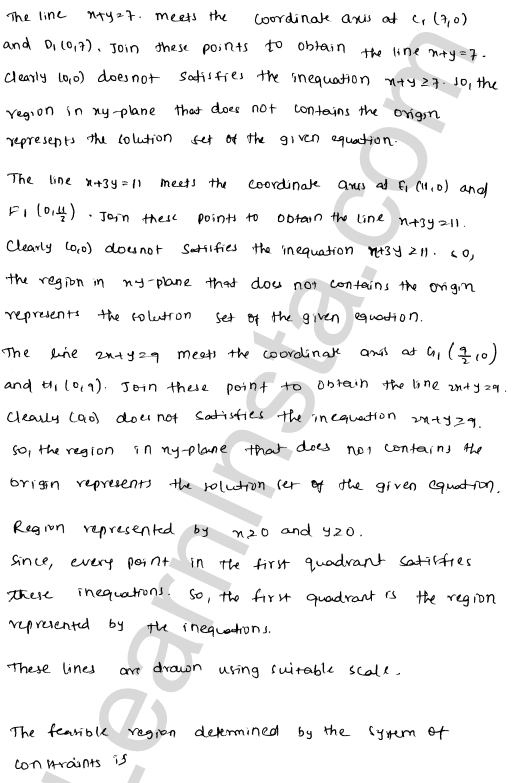 The line x+y=7. meets the coordinate axis at C1 (7,0)
and D1 (0,7). Join these points to obtain the line x+y=7.
Clearly (0,0) does not satisfies the inequation x+y≥7. So, the
region in xy-plane that does not contains the origin
represents the solution set of the given equation.
The line x+3y=11 meets the coordinate axis at E1 (11,0) and
F1 (0,11/2). Join these points to obtain the line x+3y=11.
Clearly (0,0) does not satisfies the inequation x+3y≥11. So,
the region in xy-plane that does not contains the origin
represents the solution set of the given equation.
The line 2x+y=9 meets the coordinate axis at G1 (9/2,0)
and H1 (0,9). Join these point to obtain the line 2x+y=9.
Clearly (0,0) does not satisfies the inequation 2x+y≥9.
so, the region in xy-plane that does not contains the
origin represents the solution set of the given equation.
Region represented by x≥0 and y≥0.
Since, every point in the first quadrant satisfies
these inequations. So, the first quadrant is the region
represented by the inequations.
These lines are drawn using suitable scale.
The feasible region determined by the system of
constraints is
LearnInsta.com